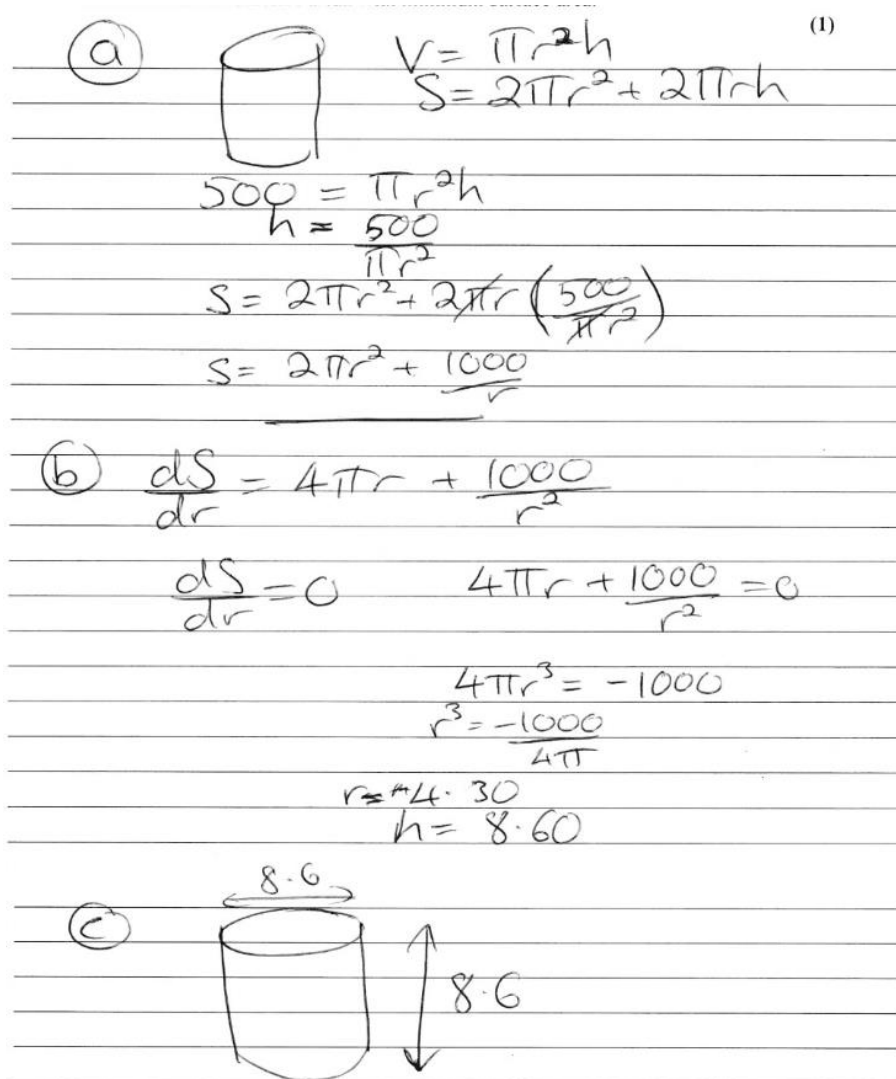 (1)
a
V = πr²h
S = 2πr² + 2πrh
500 = πr²h
h = 500/πr²
S = 2πr² + 2πr (500/πr²)
S = 2πr² + 1000/r
b dS/dr = 4πr + 1000/r²
dS/dr = 0 4πr + 1000/r² = 0
4πr³ = -1000
r³ = -1000/4π
r = 4.30
h = 8.60
c
8.6
8.6